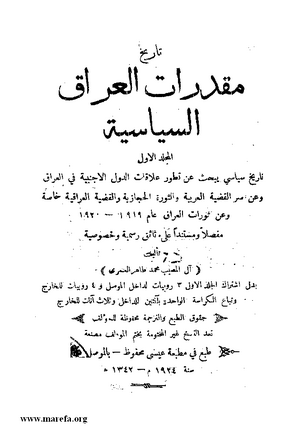 تاريخ
مقدرات العراق
السياسية
المجلد الاول
تاريخ سياسي يبحث عن تطور علاقات الدول الاجنبية في العراق
وعن سر القضية العربية والثورة الحجازية والقضية العراقية خاصة
وعن ثورات العراق عام ١٩١٩ - ١٩٢٠
مفصلاً ومستنداً على وثائق رسمية وخصوصية
تأليف
محمد طاهر العمري
بدل اشتراك المجلد الاول ٣ روبيات لداخل الموصل و ٤ روبيات للخارج
وتباع الكراسة الواحدة بآنتين للداخل وثلاث آنات للخارج
حقوق الطبع والترجمة محفوظة للمؤلف
تعد النسخ غير المختومة بختم المؤلف
طبع في مطبعة عيسى محفوظ - بالموصل
سنة ١٩٢٤ م - ١٣٤٢ ه
www.marefa.org